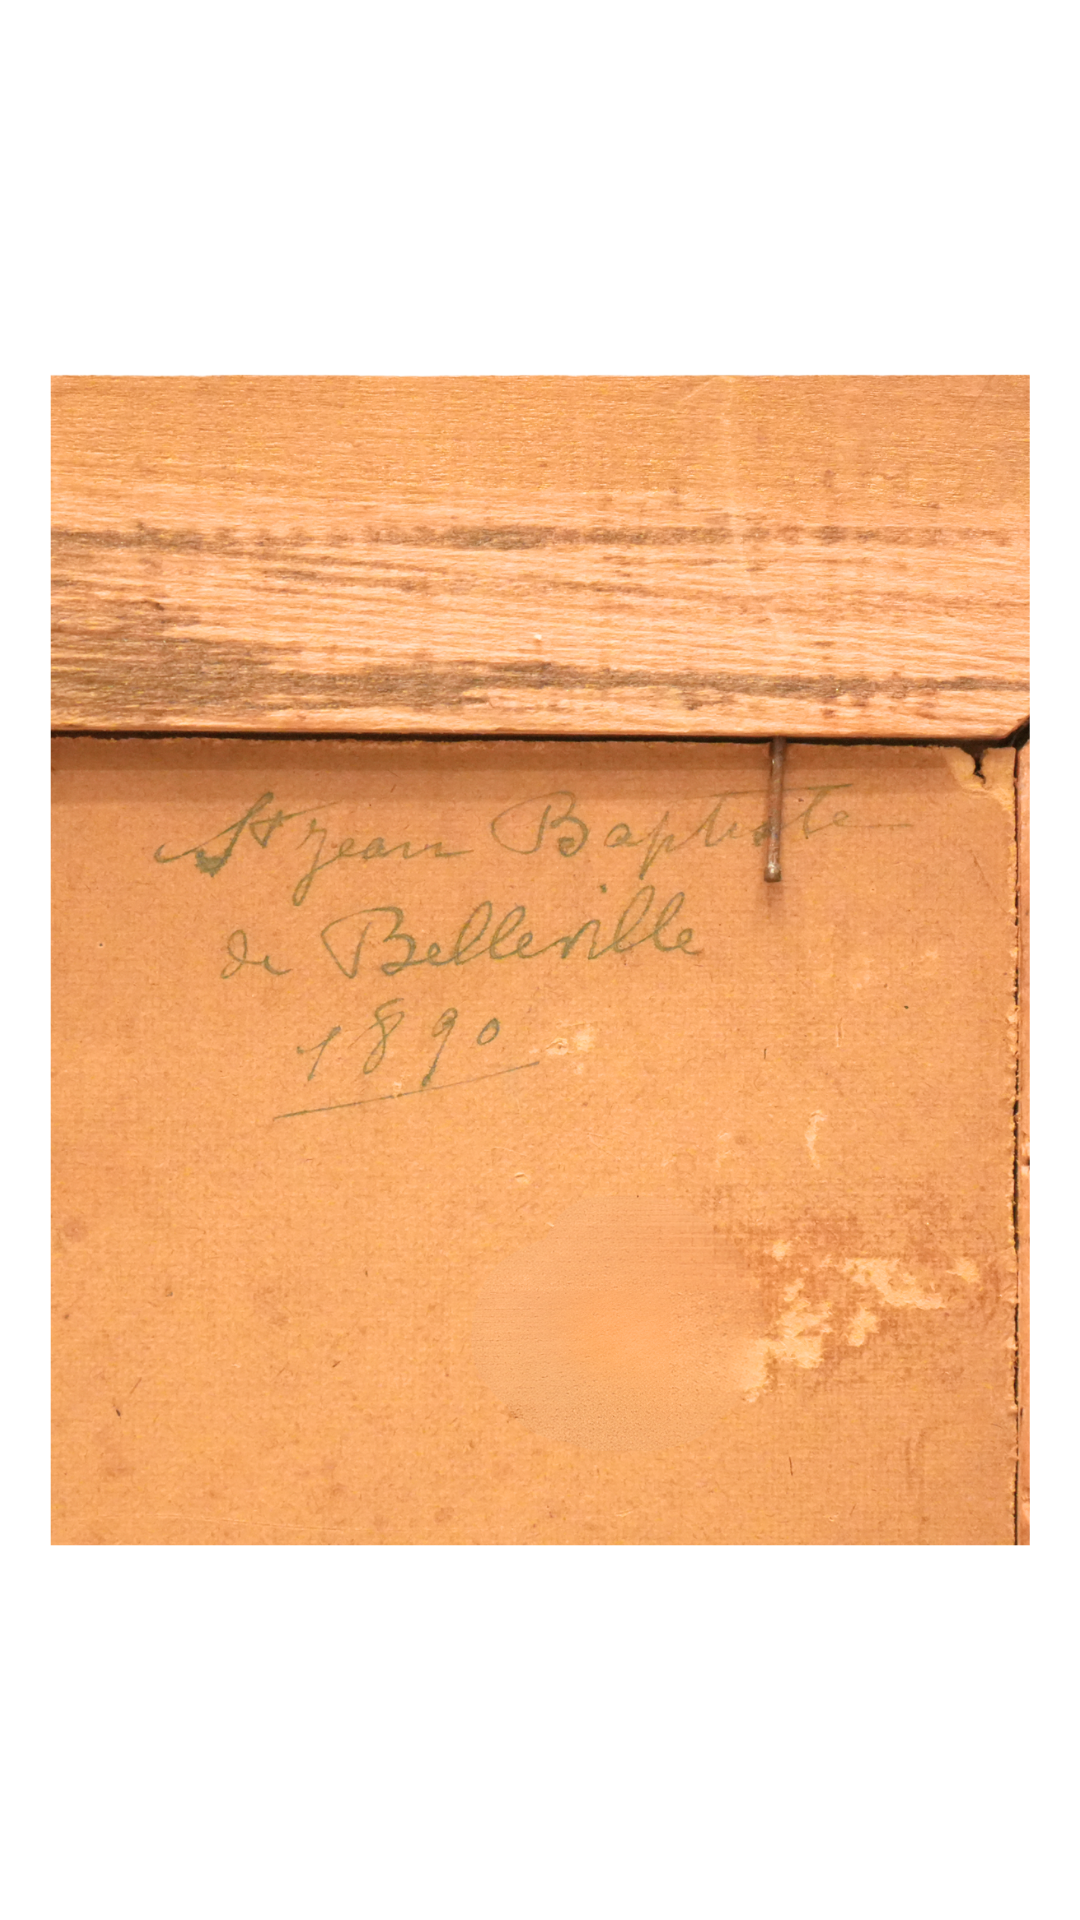 St Jean Baptiste
de Belleville
1890